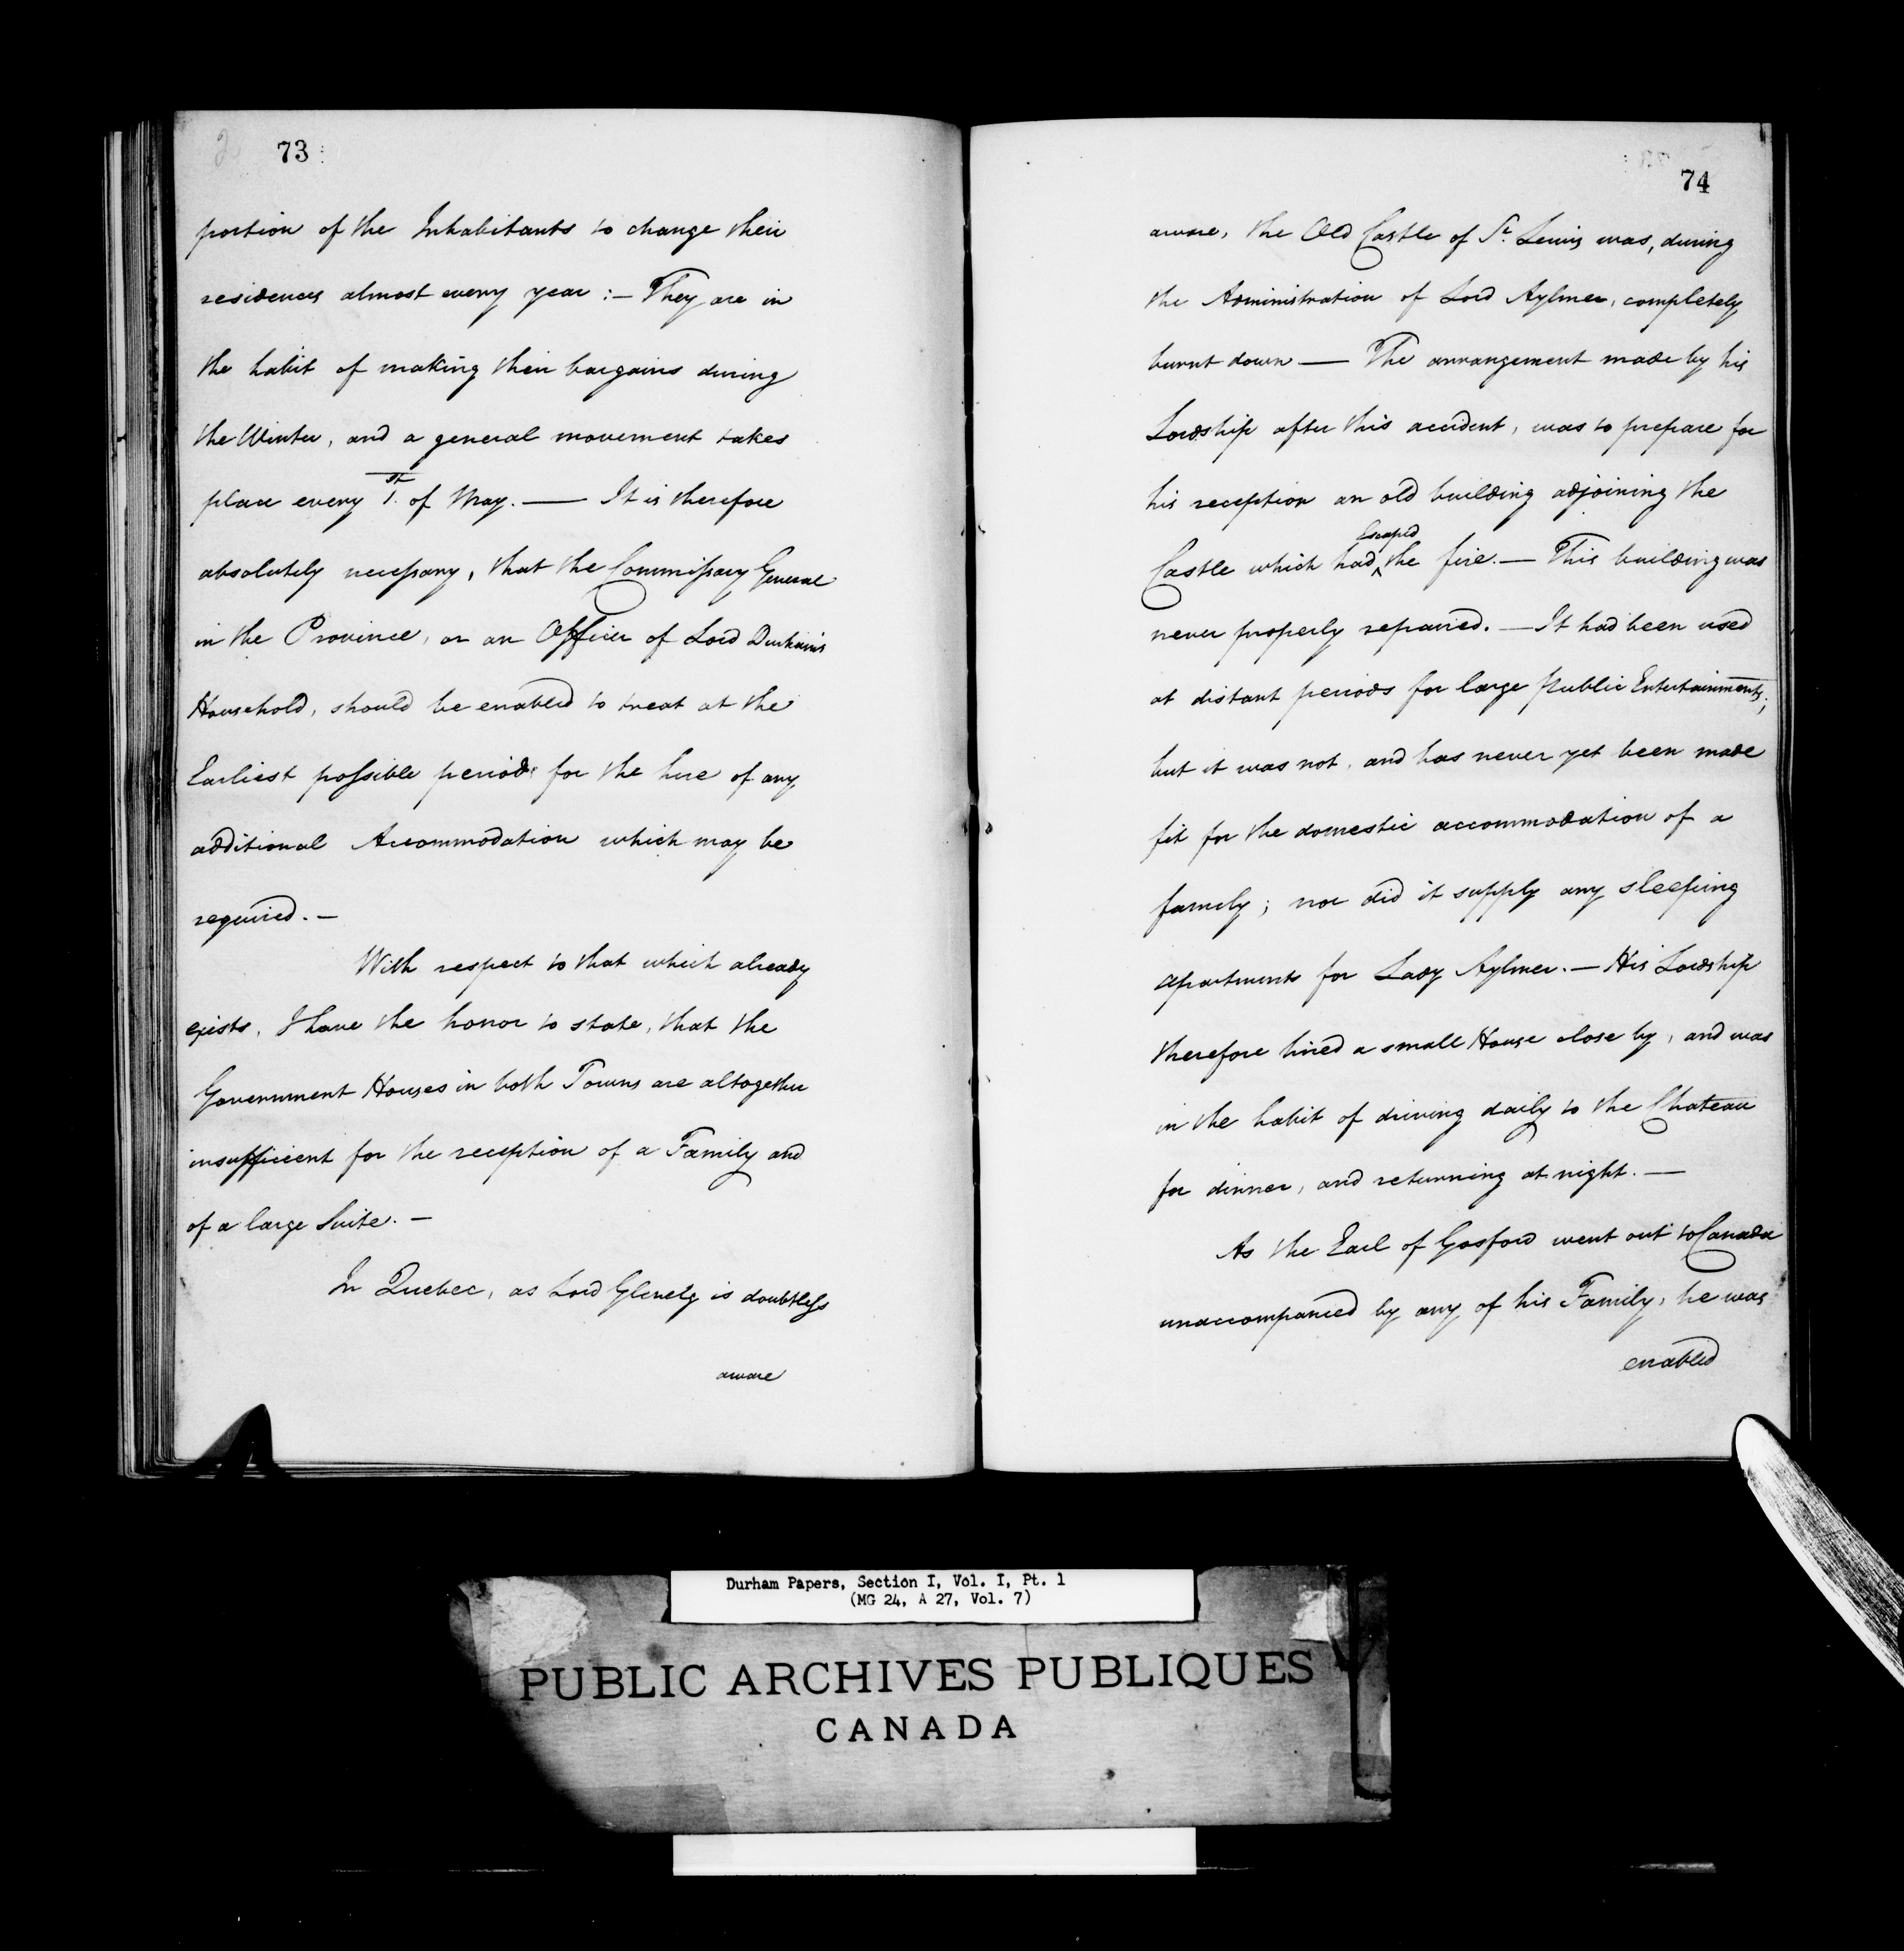 73
portion of the Inhabitants to change their
residences almost every year :— They are in
the habit of making their bargains during
the Winter, and a general movement takes
place every 1st. of May. — It is therefore
absolutely necessary, that the Commissary General
in the Province, or an Officer of Lord Durham's
Household, should be enabled to treat at the
Earliest possible period for the hire of any
additional Accommodation which may be
required. —
With respect to that which already
exists, I have the honor to state, that the
Government Houses in both Towns are altogether
insufficient for the reception of a Family and
of a large Suite. —
In Quebec, as Lord Glenelg is doubtless
aware
74
aware, the Old Castle of St. Lewis was, during
the Administration of Lord Aylmer, completely
burnt down — The arrangement made by his
Lordship after this accident, was to prepare for
his reception an old building adjoining the
Castle which had Escaped the fire. — This building was
never properly repaired. — It had been used
at distant periods for large Public Entertainments;
but it was not, and has never yet been made
fit for the domestic accommodation of a
family; nor did it supply any sleeping
apartments for Lady Aylmer. — His Lordship
therefore hired a small House close by, and was
in the habit of driving daily to the Chateau
for dinner, and returning at night. —
As the Earl of Gosford went out to Canada
unaccompanied by any of his Family, he was
enabled
Durham Papers, Section I, Vol. I, Pt. 1
(MG 24, A 27, Vol. 7)
PUBLIC ARCHIVES PUBLIQUES
CANADA